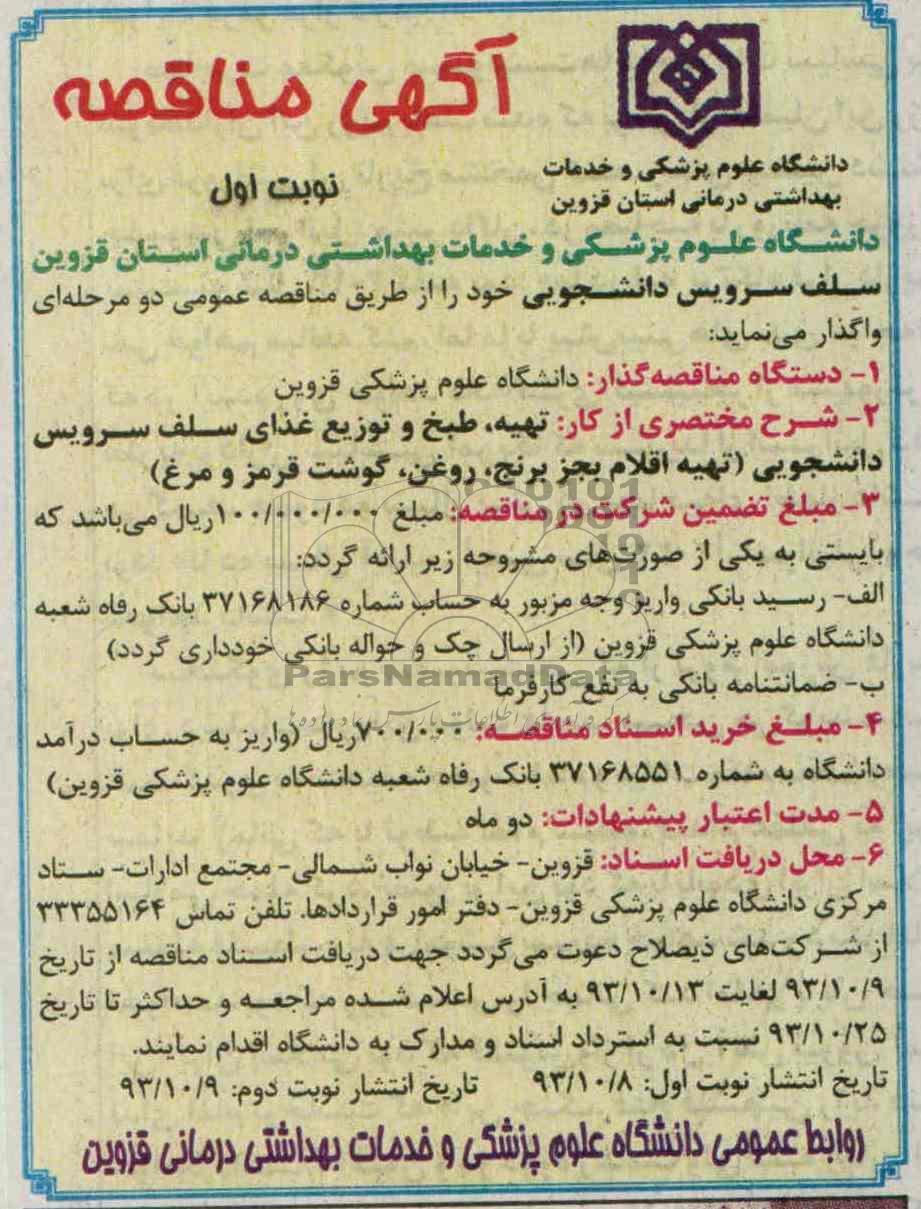 آگهی مناقصه
دانشگاه علوم پزشکی و خدمات
بهداشتی درمانی استان قزوین
نوبت اول
دانشگاه علوم پزشکی و خدمات بهداشتی درمانی استان قزوین
سلف سرویس دانشجویی خود را از طریق مناقصه عمومی دو مرحله‌ای
واگذار می‌نماید:
۱- دستگاه مناقصه‌گذار: دانشگاه علوم پزشکی قزوین
۲- شرح مختصری از کار: تهیه، طبخ و توزیع غذای سلف سرویس
دانشجویی (تهیه اقلام بجز برنج، روغن، گوشت قرمز و مرغ)
۳- مبلغ تضمین شرکت در مناقصه: مبلغ ۱۰۰/۰۰۰/۰۰۰ریال می‌باشد که
بایستی به یکی از صورت‌های مشروحه زیر ارائه گردد:
الف- رسید بانکی واریز وجه مزبور به حساب شماره ۳۷۱۶۸۱۸۶ بانک رفاه شعبه
دانشگاه علوم پزشکی قزوین (از ارسال چک و حواله بانکی خودداری گردد)
ParsNamadData
ب- ضمانتنامه بانکی به نفع کارفرما
۴- مبلغ خرید اسناد مناقصه: ۷۰۰/۰۰۰ریال (واریز به حساب درآمد
دانشگاه به شماره ۳۷۱۶۸۵۵۱ بانک رفاه شعبه دانشگاه علوم پزشکی قزوین)
۵- مدت اعتبار پیشنهادات: دو ماه
۶- محل دریافت اسناد: قزوین- خیابان نواب شمالی- مجتمع ادارات- ستاد
مرکزی دانشگاه علوم پزشکی قزوین- دفتر امور قراردادها. تلفن تماس ۳۳۳۵۵۱۶۴
از شرکت‌های ذیصلاح دعوت می‌گردد جهت دریافت اسناد مناقصه از تاریخ
۹۳/۱۰/۹ لغایت ۹۳/۱۰/۱۳ به آدرس اعلام شده مراجعه و حداکثر تا تاریخ
۹۳/۱۰/۲۵ نسبت به استرداد اسناد و مدارک به دانشگاه اقدام نمایند.
تاریخ انتشار نوبت اول: ۹۳/۱۰/۸ تاریخ انتشار نوبت دوم: ۹۳/۱۰/۹
روابط عمومی دانشگاه علوم پزشکی و خدمات بهداشتی درمانی قزوین